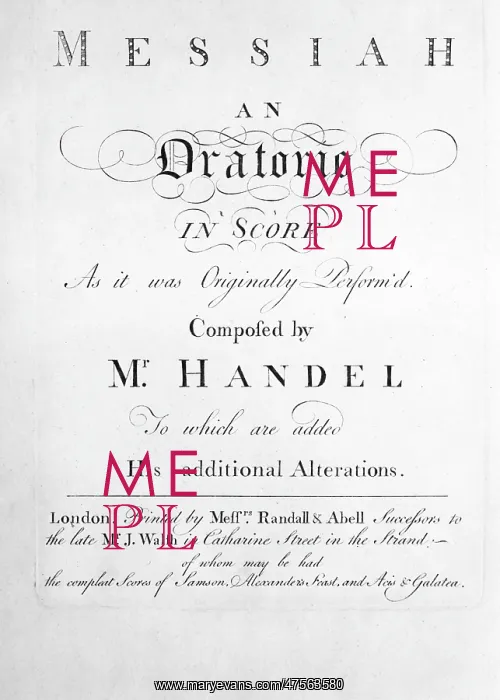 MESSIAH
AN
Oratorio
IN SCORE
As it was Originally Perform'd.
Compoſed by
Mr. HANDEL
To which are added
His additional Alterations.
London. Printed by Meſſrs. Randall & Abell Succeſsors to
the late Mr. J. Walsh in Catharine Street in the Strand
of whom may be had
the compleat Scores of Samson, Alexander's Feast, and Acis & Galatea.
ME
PL
ME
PL
www.maryevans.com/47563580